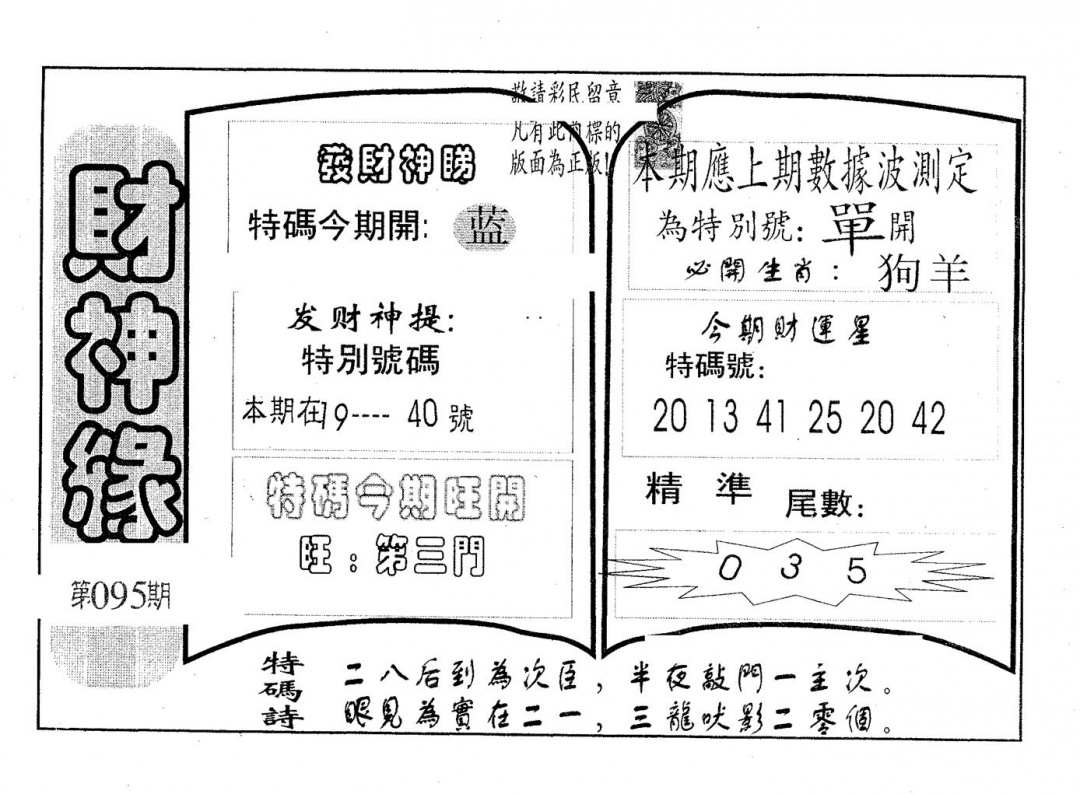 財神緣
第095期
敬請彩民留意
凡有此內標的
版面為正版!
發財神睇
特碼今期開: 蓝
发财神提:
特別號碼
本期在19---- 40 號
特碼今期旺開
旺：第三門
本期應上期數據波測定
為特別號: 單開
必開生肖： 狗羊
今期財運星
特碼號:
20 13 41 25 20 42
精 準 尾數:
0 3 5
特碼詩
二八后到為次臣，半夜敲門一主次。
眼見為實在二一，三龍吠影二零個。